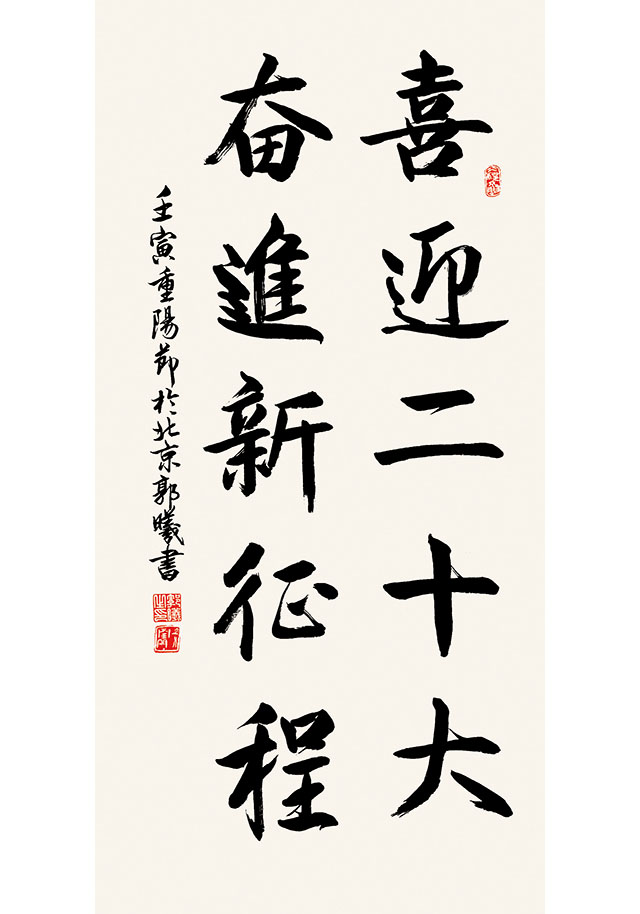 喜迎二十大
奮進新征程
壬寅重陽節於北京郭曦書